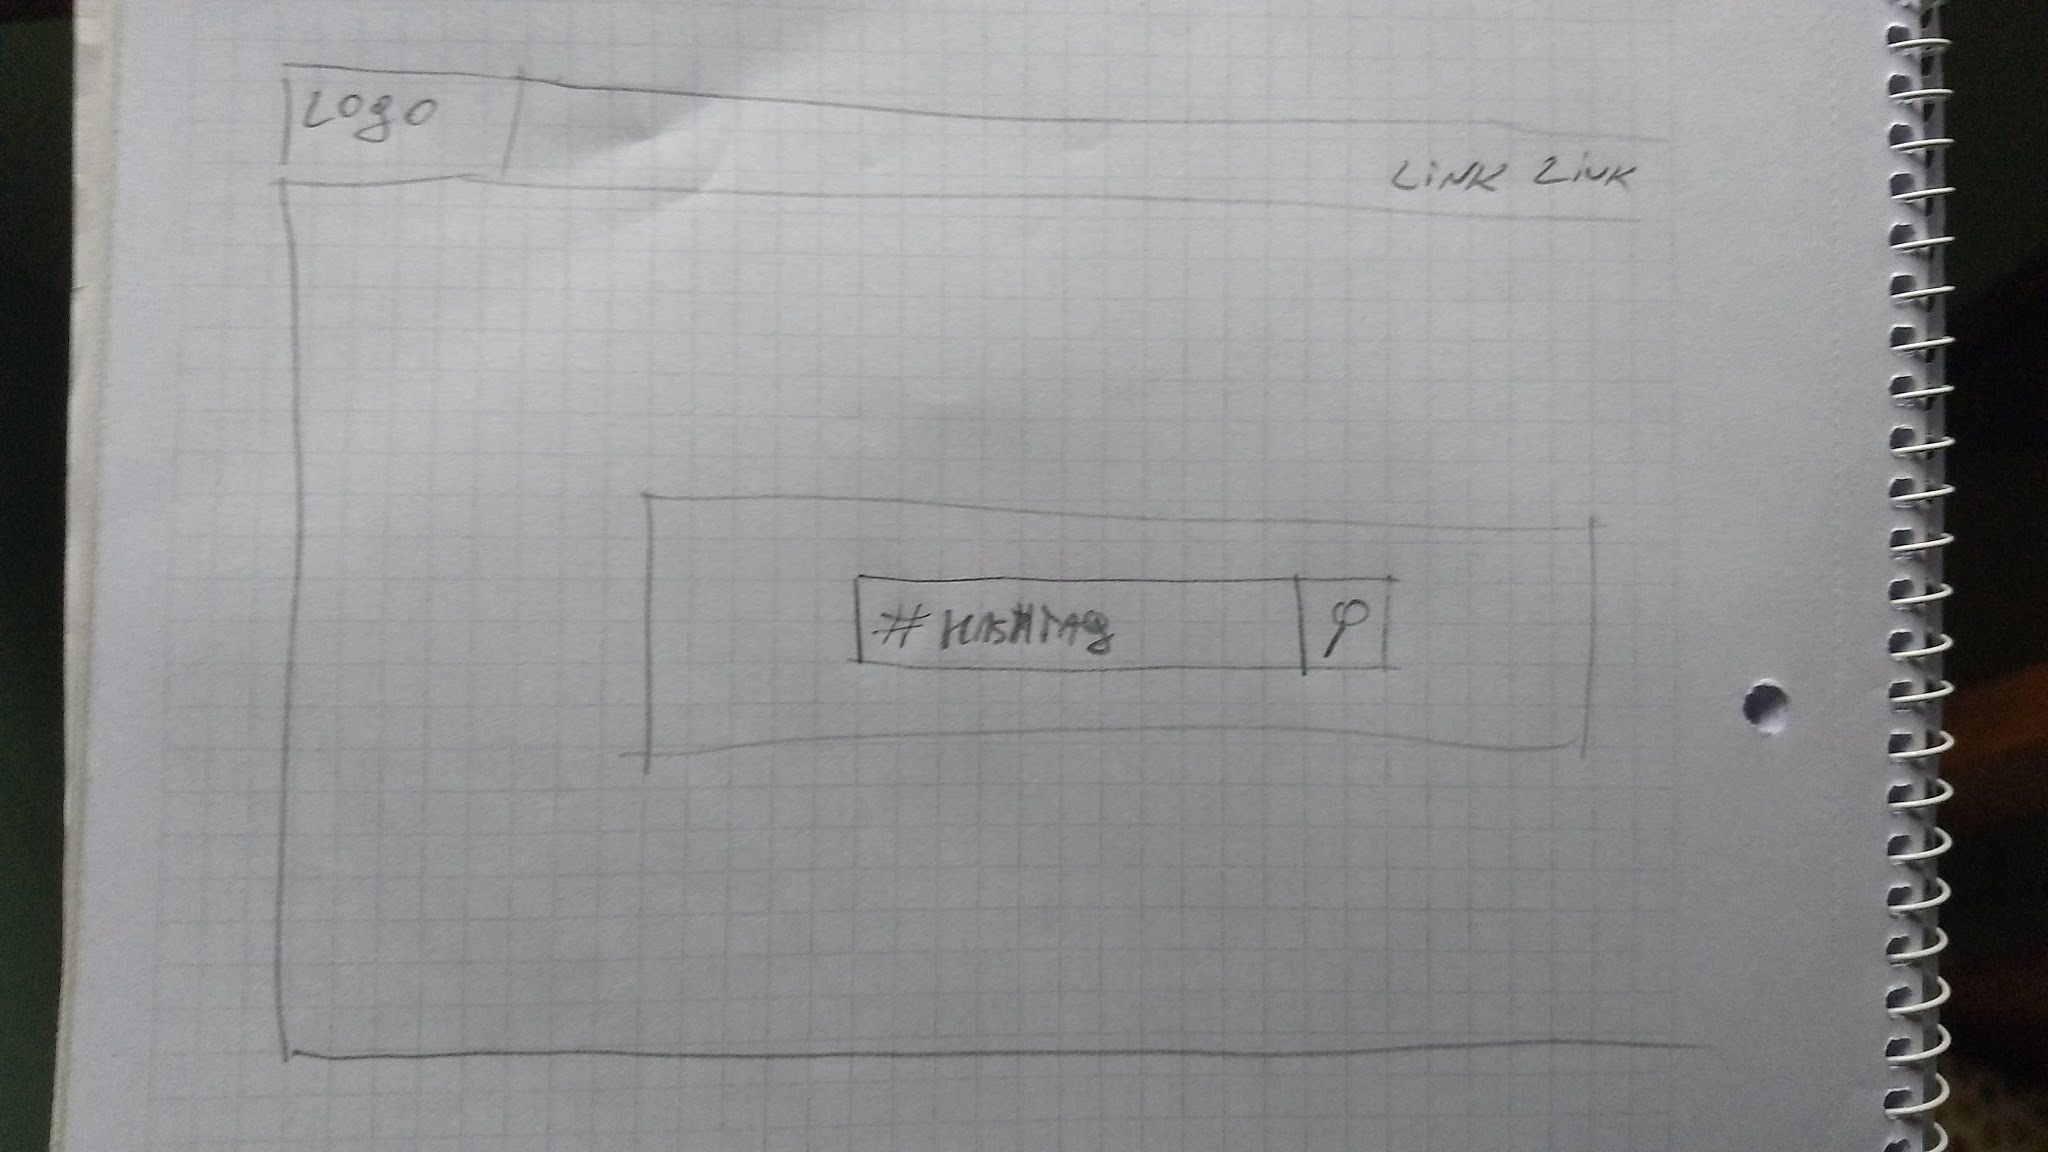 Logo
LiNK LiNK
# HASHTAg